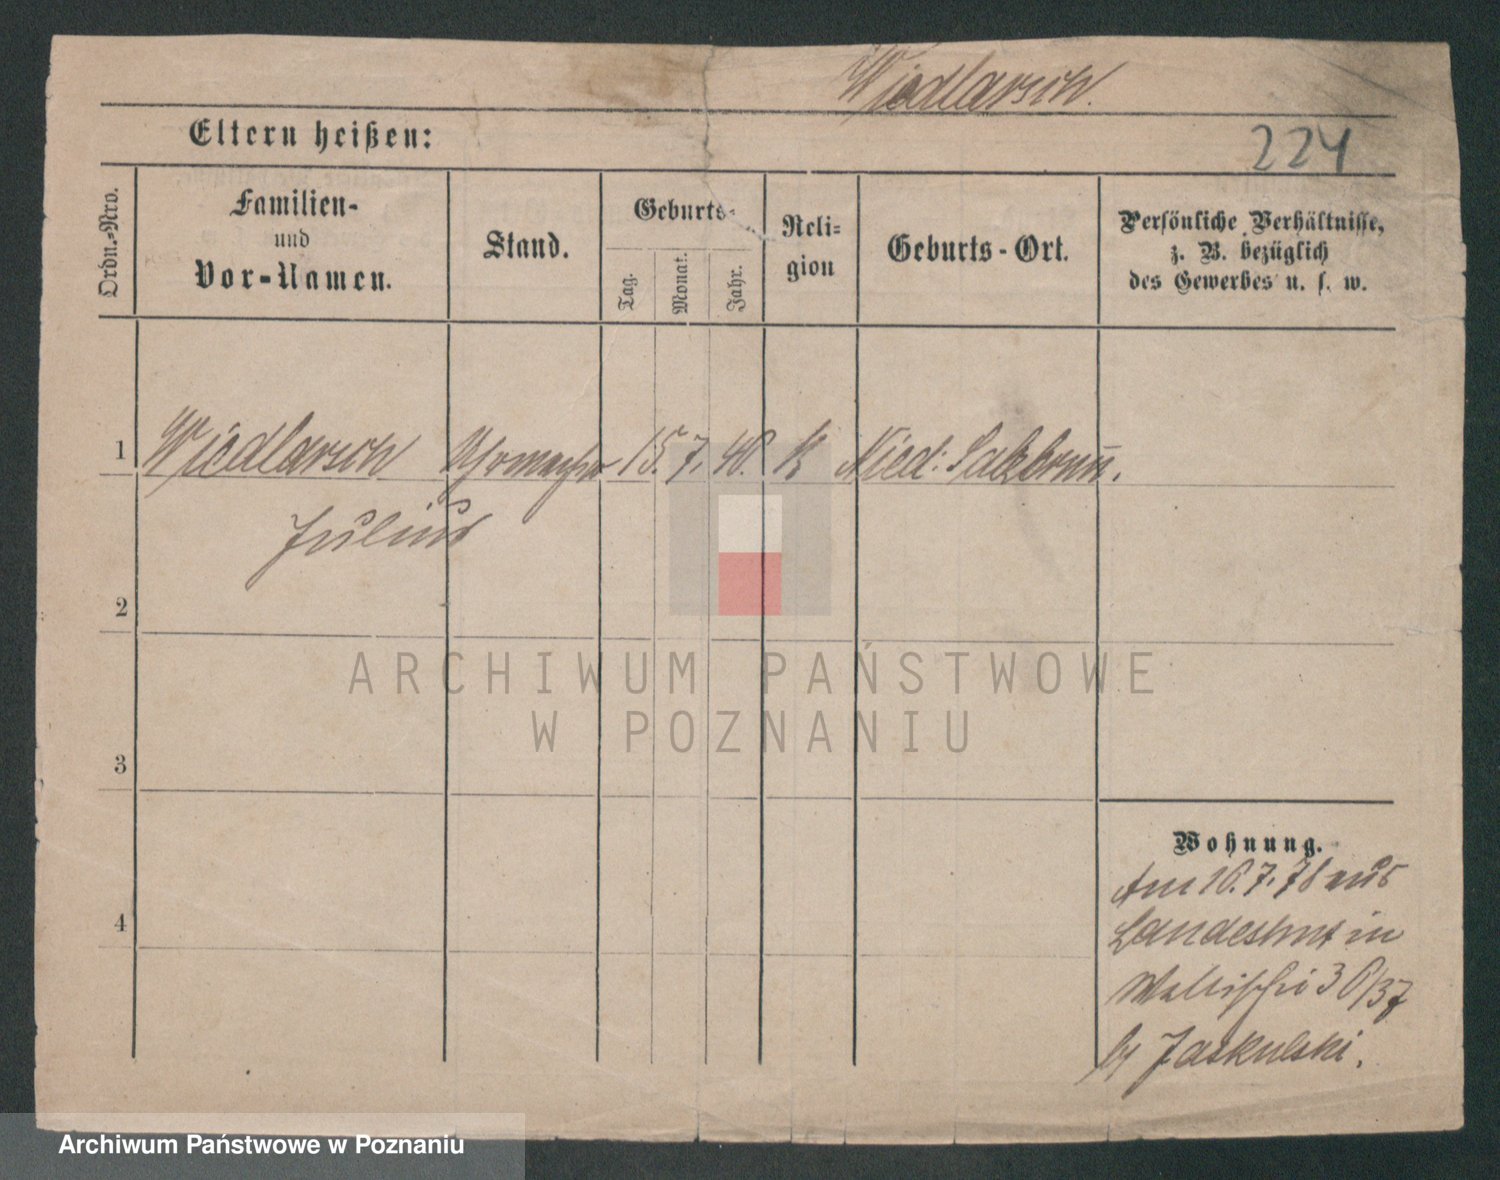 Wiedlarsch.
Eltern heißen:
224
Ordn.-Nro.
Familien-
und
Vor-Namen.
Stand.
Geburts-
Tag.
Monat.
Jahr.
Reli-
gion
Geburts-Ort.
Persönliche Verhältnisse,
z. B. bezüglich
des Gewerbes u. s. w.
1 Wiedlarsch Uhrmacher 15. 7. 48. K Nied: Salzbrunn.
Julius
2
3
4
Wohnung.
Am 16.7.78 aus
Landeshut in
Wallischei 36/37
by Jaskulski.
ARCHIWUM PAŃSTWOWE
W POZNANIU
Archiwum Państwowe w Poznaniu